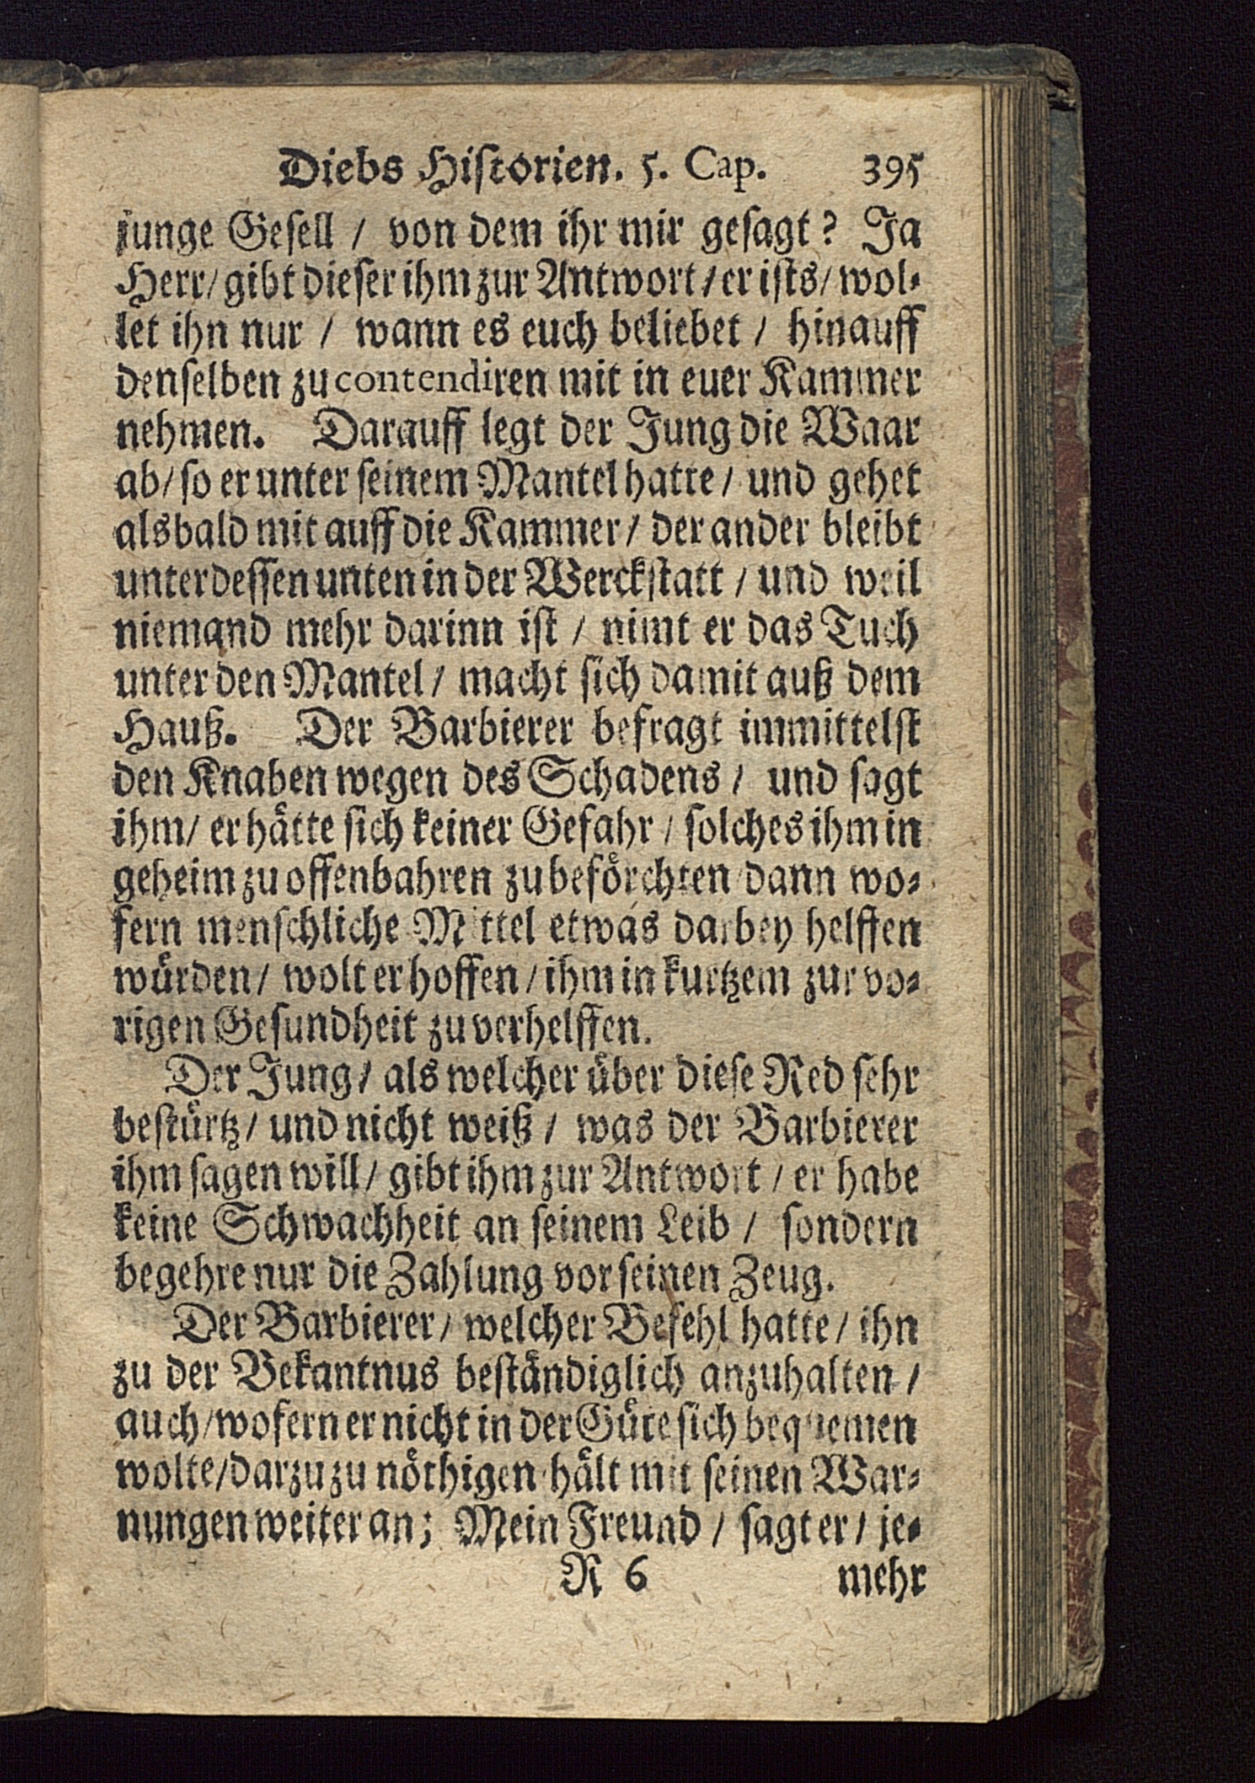 Diebs Historien. 5. Cap. 395
junge Gesell / von dem ihr mir gesagt? Ja
Herr/ gibt dieser ihm zur Antwort / er ists / wol-
let ihn nur / wann es euch beliebet / hinauff
denselben zu contendiren mit in euer Kammer
nehmen. Darauff legt der Jung die Waar
ab/ so er unter seinem Mantel hatte / und gehet
alsbald mit auff die Kammer / der ander bleibt
unterdessen unten in der Werckstatt / und weil
niemand mehr darinn ist / nimt er das Tuch
unter den Mantel / macht sich damit auß dem
Hauß. Der Barbierer befragt immittelst
den Knaben wegen des Schadens / und sagt
ihm/ er hätte sich keiner Gefahr / solches ihm in
geheim zu offenbahren zu beförchten dann wo-
fern menschliche Mittel etwas darbey helffen
würden / wolt er hoffen / ihm in kurtzem zur vo-
rigen Gesundheit zu verhelffen.
Der Jung / als welcher über diese Red sehr
bestürtz / und nicht weiß / was der Barbierer
ihm sagen will / gibt ihm zur Antwort / er habe
keine Schwachheit an seinem Leib / sondern
begehre nur die Zahlung vor seinen Zeug.
Der Barbierer / welcher Befehl hatte / ihn
zu der Bekantnus beständiglich anzuhalten /
auch / wofern er nicht in der Güte sich bequemen
wolte / darzu zu nöthigen hält mit seinen War-
nungen weiter an; Mein Freund / sagt er / je-
R 6 mehr